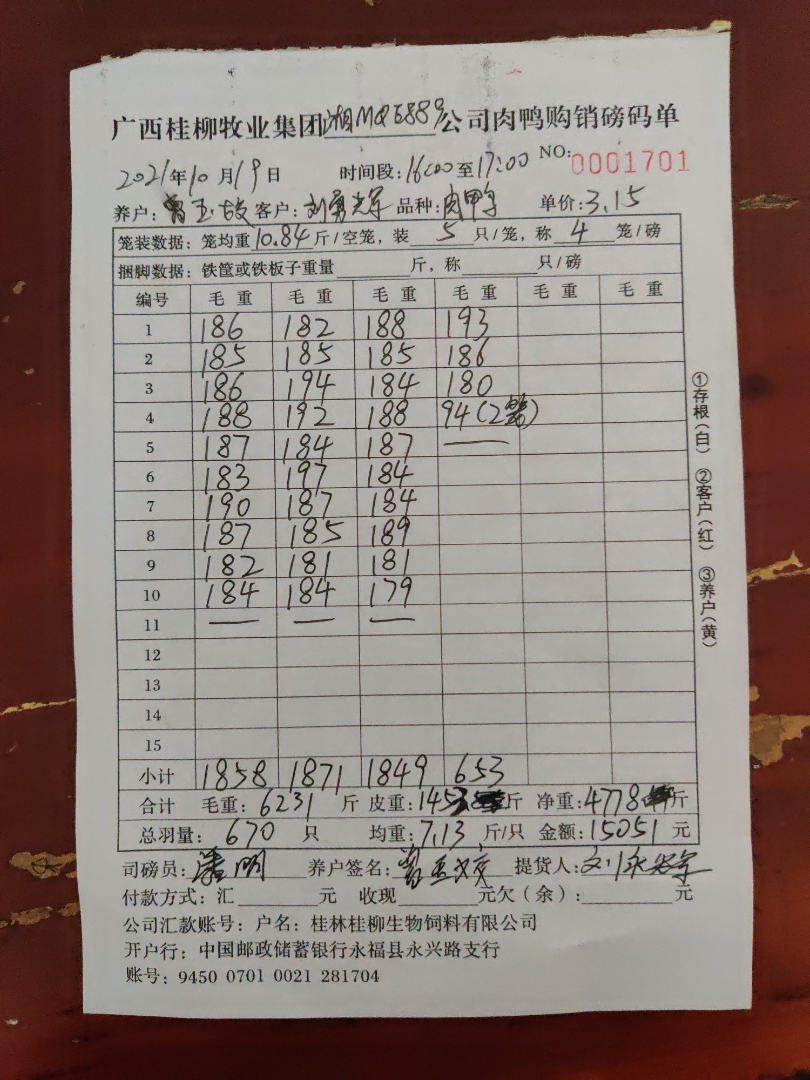 广西桂柳牧业集团湘MQE889公司肉鸭购销磅码单
2021年10月19日 时间段:16:00至17:00 NO:0001701
养户:曾玉 客户:刘 品种:肉鸭 单价:3.15
笼装数据:笼均重10.84斤/空笼,装5只/笼,称4笼/磅
捆脚数据:铁筐或铁板子重量 斤,称 只/磅
编号 毛重 毛重 毛重 毛重 毛重 毛重
1 186 182 188 193
2 185 185 185 186
3 186 194 184 180
4 188 192 188 94(2笼)
5 187 184 187
6 183 197 184
7 190 187 184
8 187 185 189
9 182 181 181
10 184 184 179
11
12
13
14
15
小计 1858 1871 1849 653
合计 毛重:6231斤 皮重:1453斤 净重:4778斤
总羽量:670只 均重:7.13斤/只 金额:15051元
司磅员:潘明 养户签名:曾玉 提货人:
付款方式:汇 元 收现 元欠(余): 元
公司汇款账号:户名:桂林桂柳生物饲料有限公司
开户行:中国邮政储蓄银行永福县永兴路支行
账号:9450 0701 0021 281704
①存根(白) ②客户(红) ③养户(黄)